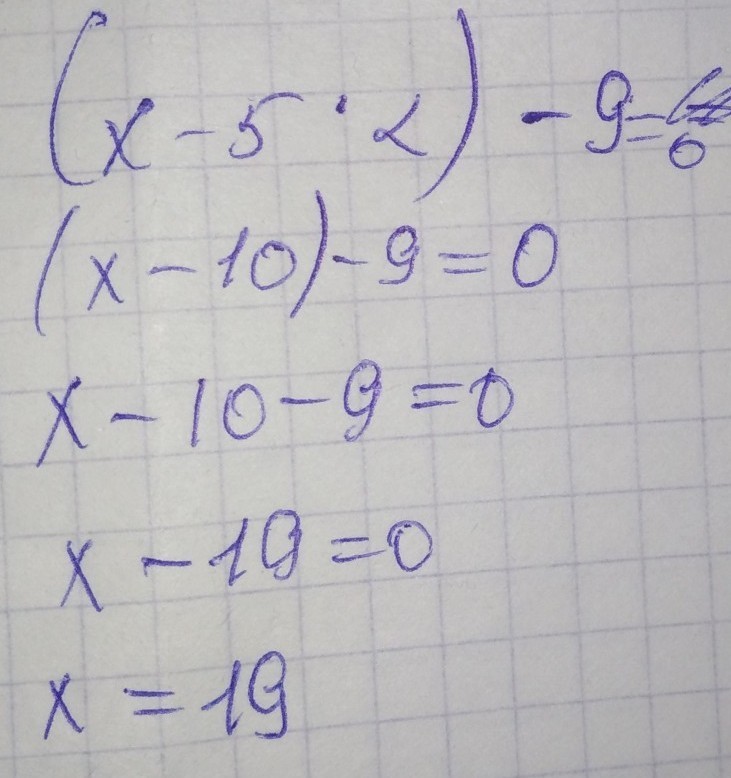 (x - 5 · 2) - 9 = 0
(x - 10) - 9 = 0
x - 10 - 9 = 0
x - 19 = 0
x = 19